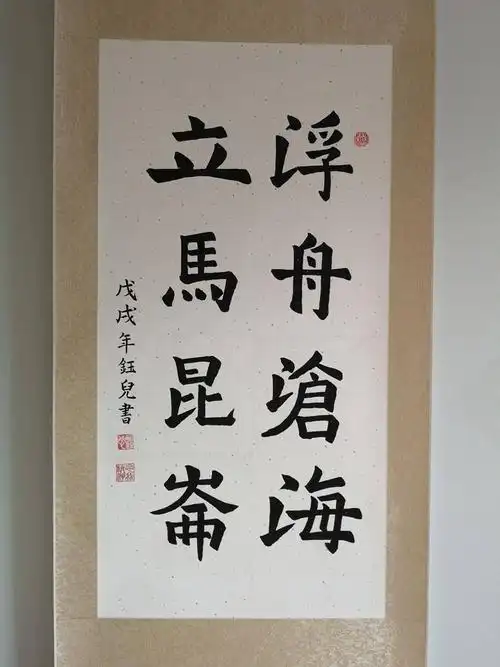 浮舟滄海
立馬昆崙
戊戌年鈺兒書